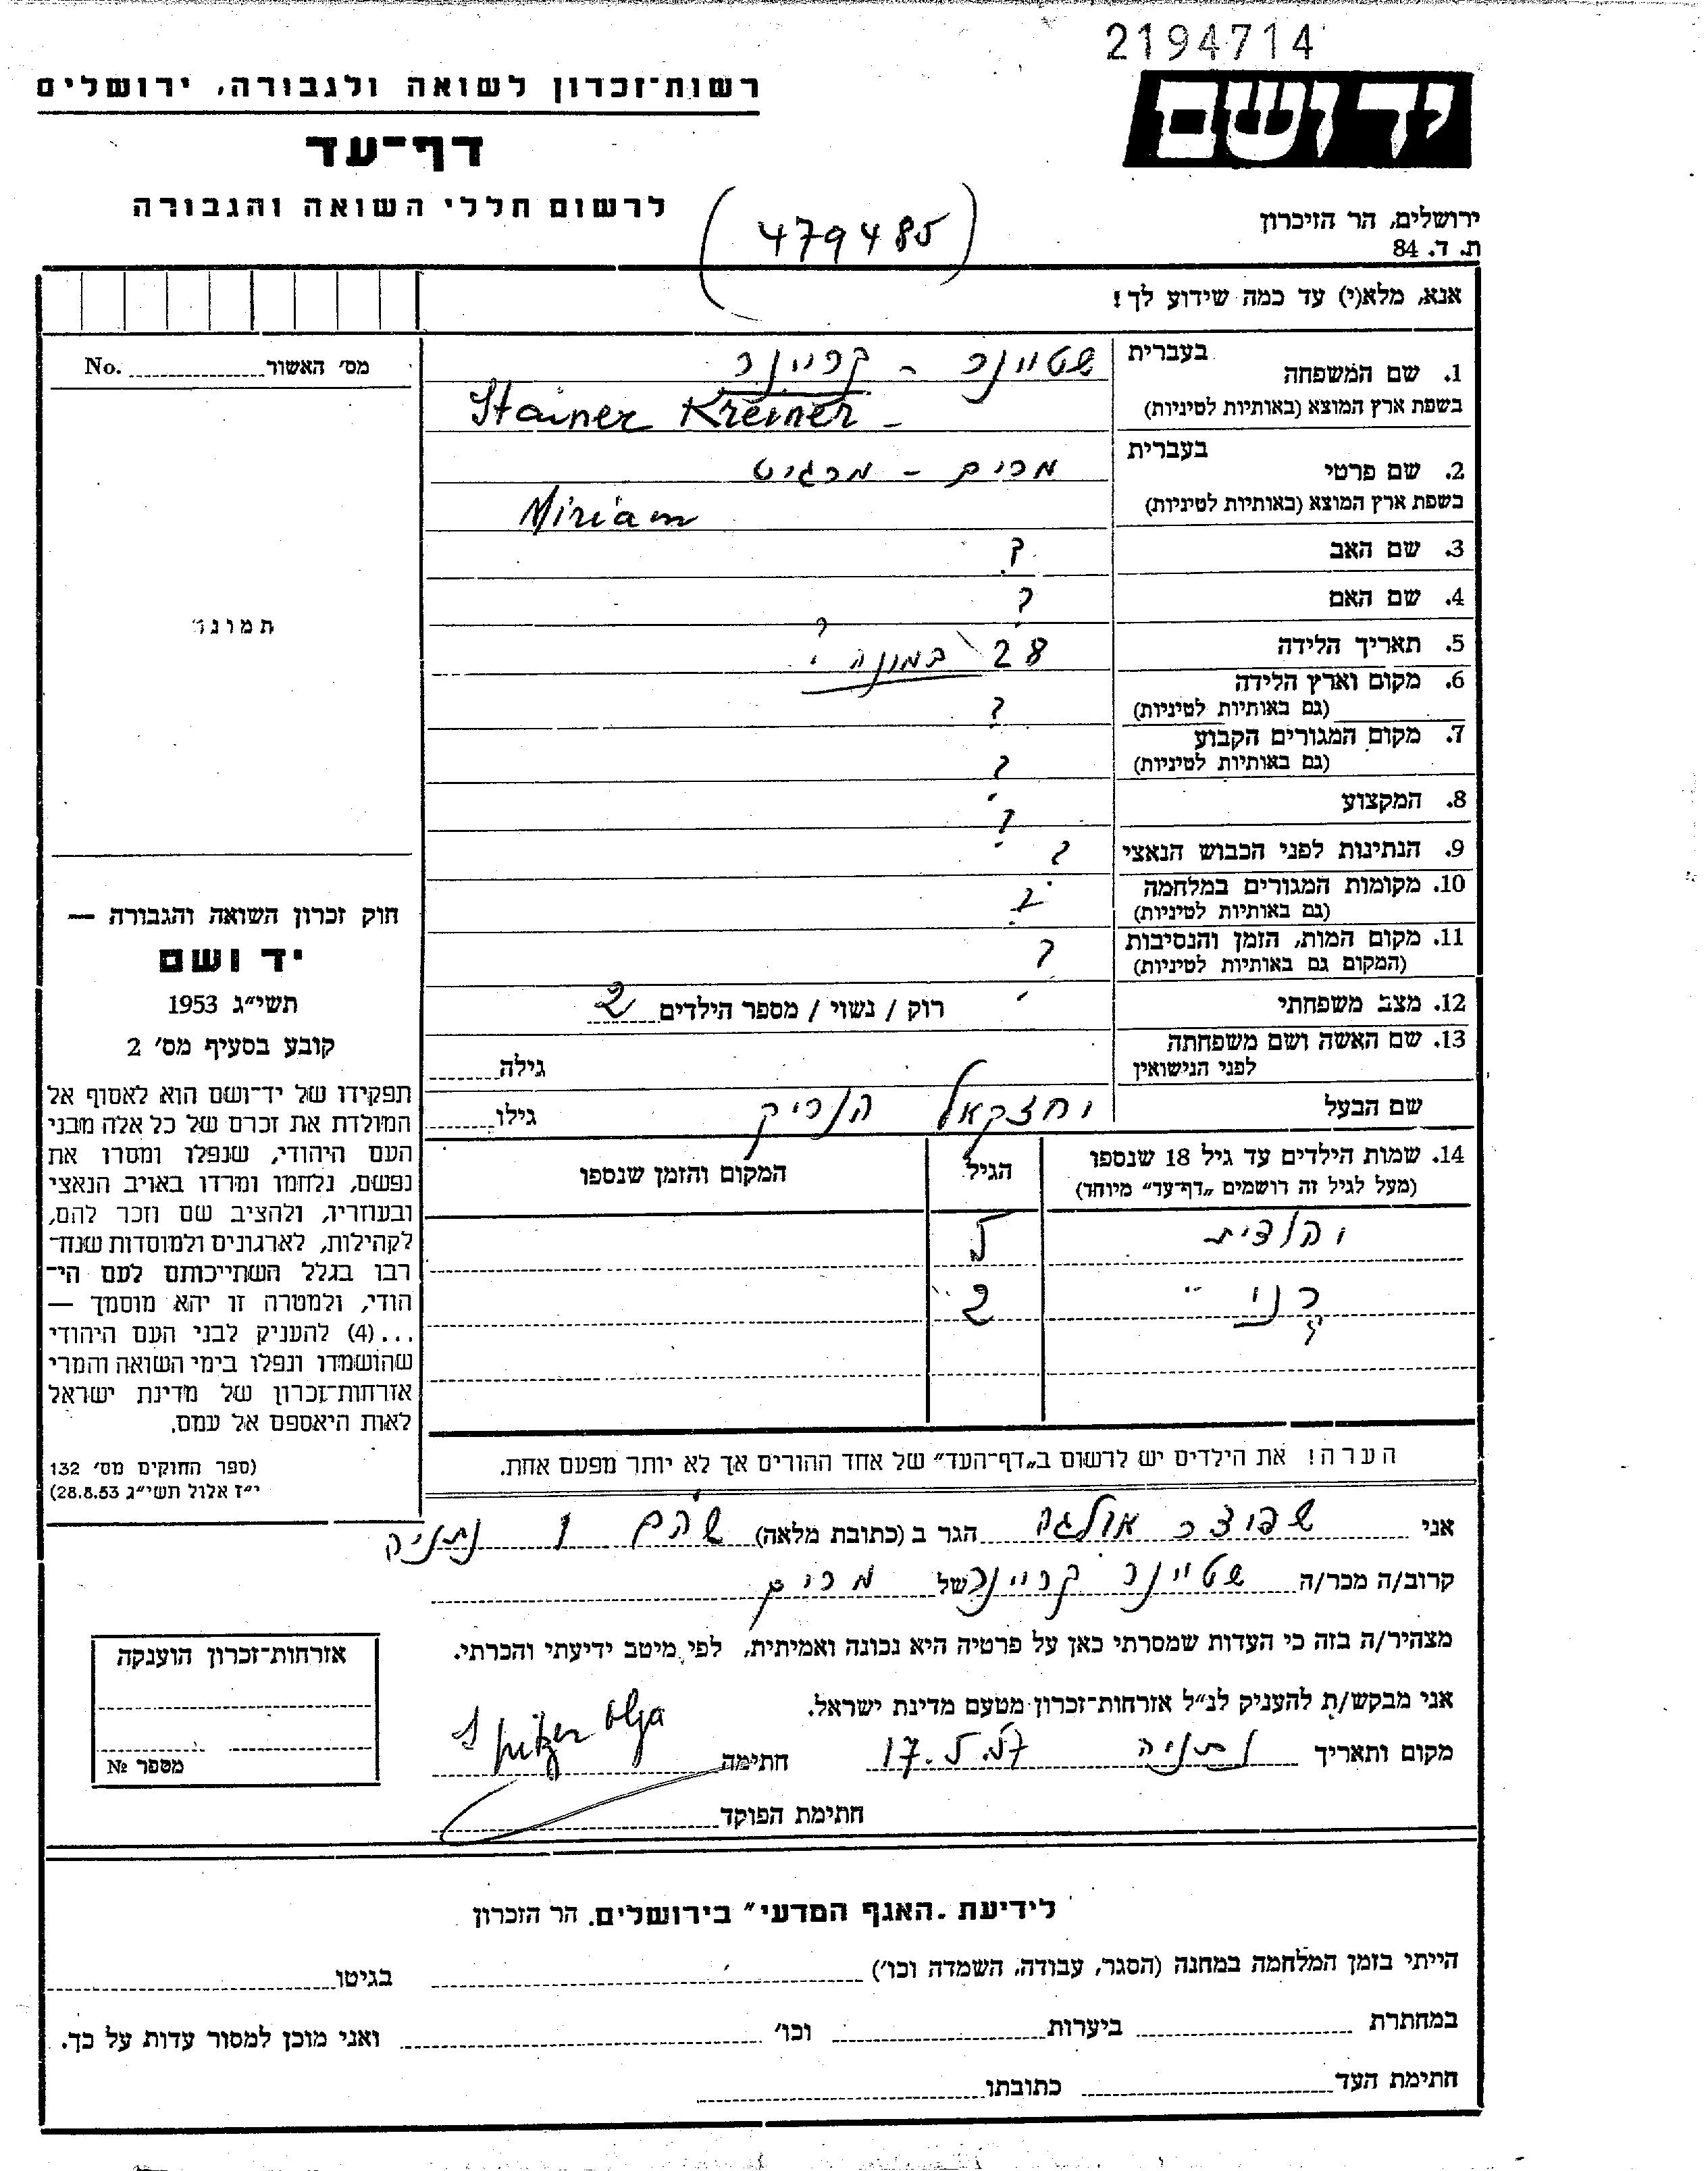 2194714
יד ושם
רשות־זכרון לשואה ולגבורה, ירושלים
דף־עד
לרשום חללי השואה והגבורה
ירושלים, הר הזיכרון
ת. ד. 84
(479485)
אנא, מלא(י) עד כמה שידוע לך!
בעברית
1. שם המשפחה
שטיינר - קריינר
בשפת ארץ המוצא (באותיות לטיניות)
Stainer Kreiner -
בעברית
2. שם פרטי
מרים - מרגיט
בשפת ארץ המוצא (באותיות לטיניות)
Miriam
3. שם האב ?
4. שם האם ?
5. תאריך הלידה 28 בתמונה ?
6. מקום וארץ הלידה
(גם באותיות לטיניות) ?
7. מקום המגורים הקבוע
(גם באותיות לטיניות) ?
8. המקצוע ?
9. הנתינות לפני הכבוש הנאצי ?
10. מקומות המגורים במלחמה
(גם באותיות לטיניות) ?
11. מקום המות, הזמן והנסיבות
(המקום גם באותיות לטיניות) ?
12. מצב משפחתי רוק / נשוי / מספר הילדים 2
13. שם האשה ושם משפחתה
לפני הנישואין גילה
שם הבעל יחזקאל הנריק גילו
14. שמות הילדים עד גיל 18 שנספו
(מעל לגיל זה רושמים „דף־עד” מיוחד)
הגיל
המקום והזמן שנספו
יהודית 5
רני " 2
הערה! את הילדים יש לרשום ב„דף־העד” של אחד ההורים אך לא יותר מפעם אחת.
מס׳ האשור No.
תמונה
חוק זכרון השואה והגבורה —
יד ושם
תשי״ג 1953
קובע בסעיף מס׳ 2
תפקידו של יד־ושם הוא לאסוף אל
המולדת את זכרם של כל אלה מבני
העם היהודי, שנפלו ומסרו את
נפשם, נלחמו ומרדו באויב הנאצי
ובעוזריו, ולהציב שם וזכר להם,
לקהילות, לארגונים ולמוסדות שנח־
רבו בגלל השתייכותם לעם הי־
הודי, ולמטרה זו יהא מוסמך —
...(4) להעניק לבני העם היהודי
שהושמדו ונפלו בימי השואה והמרי
אזרחות־זכרון של מדינת ישראל
לאות היאספם אל עמם.
(ספר החוקים מס׳ 132
י״ז אלול תשי״ג 28.8.53)
אני שפיצר אולגה הגר ב (כתובת מלאה) שהם 1 נתניה
קרוב/ה מכר/ה של שטיינר קריינר מרים
מצהיר/ה בזה כי העדות שמסרתי כאן על פרטיה היא נכונה ואמיתית, לפי מיטב ידיעתי והכרתי.
אני מבקש/ת להעניק לנ״ל אזרחות־זכרון מטעם מדינת ישראל.
מקום ותאריך נתניה 17.5.57 חתימה Spitzer Olga
חתימת הפוקד
אזרחות־זכרון הוענקה
מספר №
לידיעת „האגף המדעי” בירושלים. הר הזכרון
הייתי בזמן המלחמה במחנה (הסגר, עבודה, השמדה וכו׳) בגיטו
במחתרת ביערות וכו׳ ואני מוכן למסור עדות על כך.
חתימת העד כתובתו